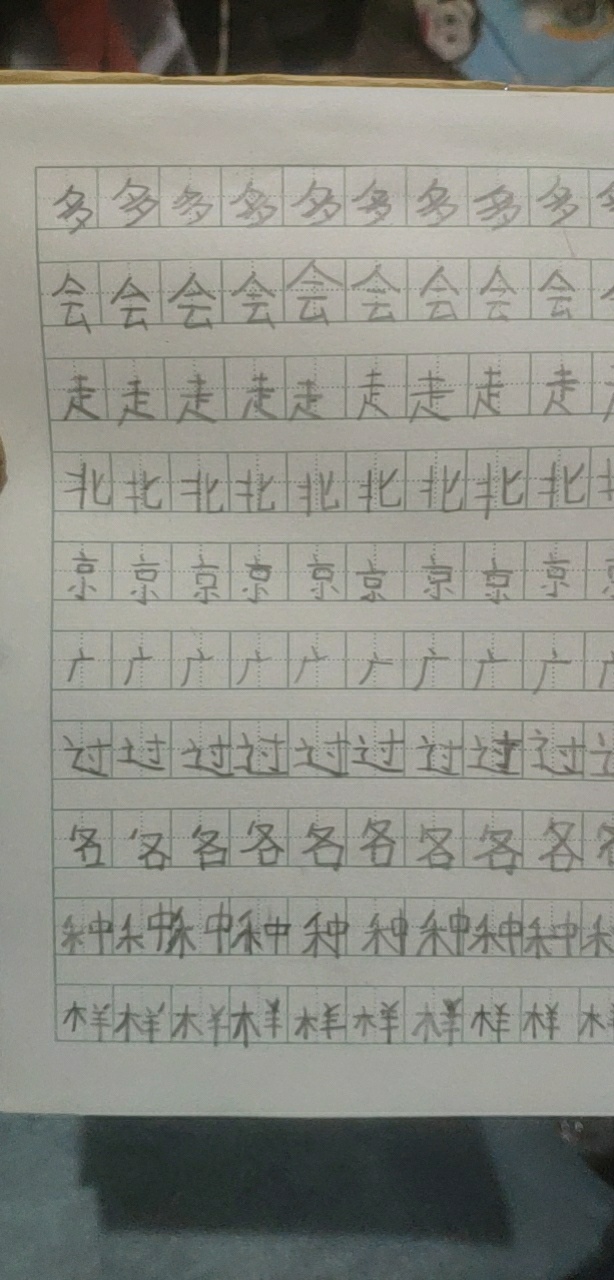 多多多多多多多多多
会会会会会会会会会
走走走走走走走走走
北北北北北北北北北
京京京京京京京京京
广广广广广广广广广
过过过过过过过过过
各各各各各各各各各
种种种种种种种种种
样样样样样样样样样